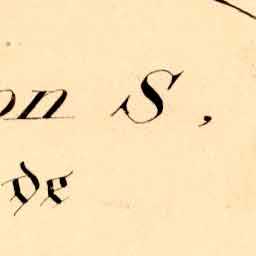 on S,
de